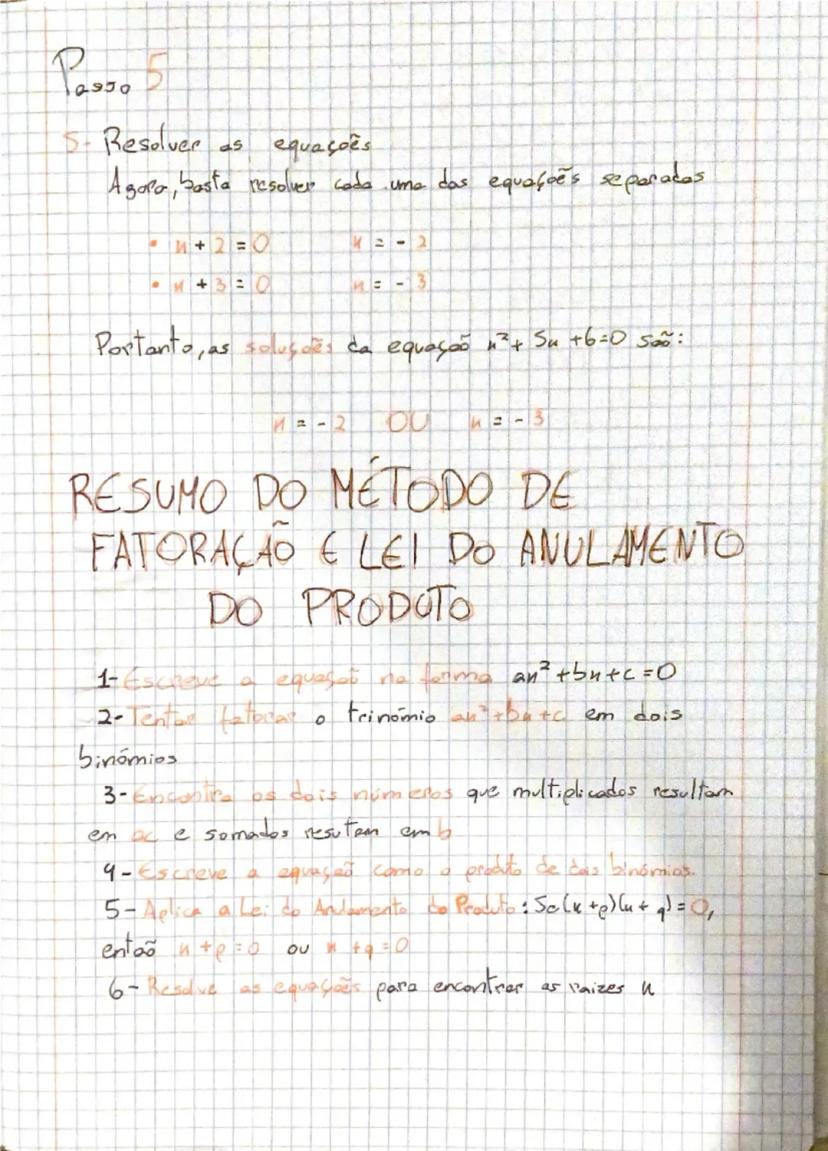 Passo 5
5- Resolver as equações
Agora, basta resolver cada uma das equações separadas
• x + 2 = 0 x = - 2
• x + 3 = 0 x = - 3
Portanto, as soluções da equação x² + 5x + 6 = 0 são:
x = - 2 OU x = - 3
RESUMO DO MÉTODO DE
FATORAÇÃO E LEI DO ANULAMENTO
DO PRODUTO
1- Escreve a equação na forma ax² + bx + c = 0
2- Tentar fatorar o trinómio ax² + bx + c em dois
binómios
3- Encontra os dois números que multiplicados resultam
em ac e somados resutam em b
4- Escreve a equação como o produto de dois binómios.
5- Aplica a Lei do Anulamento do Produto: Se (x + p)(x + q) = 0,
então x + p = 0 ou x + q = 0
6- Resolve as equações para encontrar as raizes x